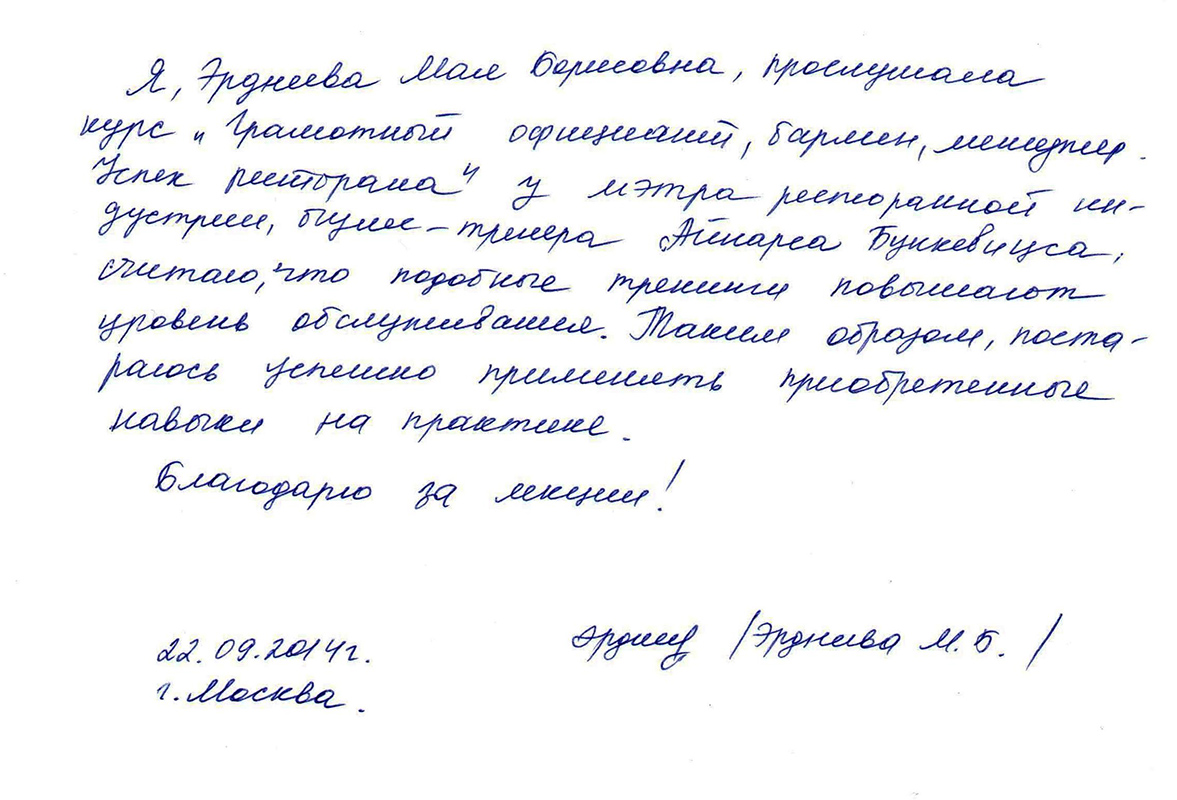 Я, Эрдниева Мая Борисовна, прослушала
курс „Грамотный официант, бармен, менеджер.
Успех ресторана" у мэтра ресторанной ин-
дустрии, бизнес-тренера Айнарса Бункевицса,
считаю, что подобные тренинги повышают
уровень обслуживания. Таким образом, поста-
раюсь успешно применять приобретенные
навыки на практике.
Благодарю за лекции!
22.09.2014г. /Эрдниева М.Б./
г. Москва.